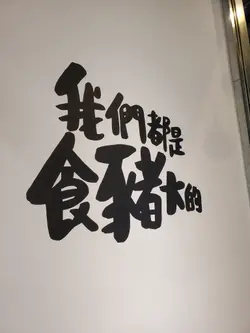 我們都是
食豬大的